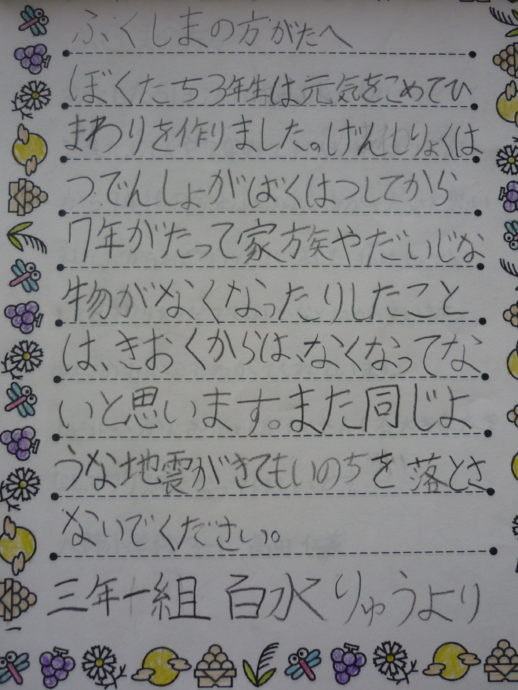 ふくしまの方がたへ
ぼくたち3年生は元気をこめてひ
まわりを作りました。げんしりょくは
つでんしょがばくはつしてから
7年がたって家族やだいじな
物がなくなったりしたこと
は、きおくからは、なくなってな
いと思います。また同じよ
うな地震がきてもいのちを落とさ
ないでください。
三年一組 百水りゅうより